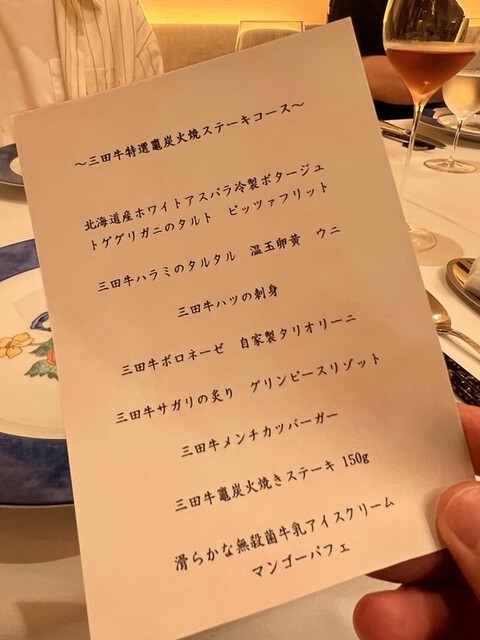 ～三田牛特選竈炭火焼ステーキコース～
北海道産ホワイトアスパラ冷製ポタージュ
トゲグリガニのタルト　ピッツァフリット
三田牛ハラミのタルタル　温玉卵黄　ウニ
三田牛ハツの刺身
三田牛ボロネーゼ　自家製タリオリーニ
三田牛サガリの炙り　グリンピースリゾット
三田牛メンチカツバーガー
三田牛竈炭火焼きステーキ 150g
滑らかな無殺菌牛乳アイスクリーム
マンゴーパフェ